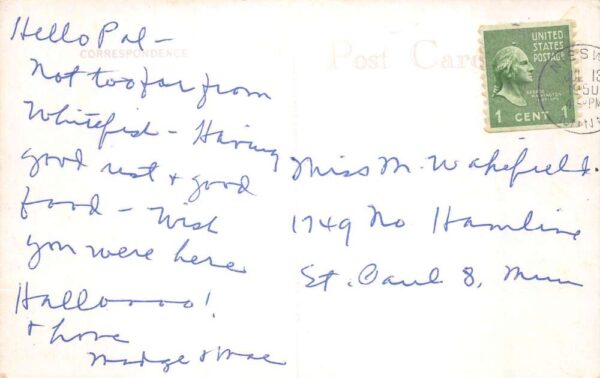 Hello Pal -
CORRESPONDENCE
Not too far from
Whitefish - Having
good rest & good
food - Wish
you were here
Halloooo!
& Love
Madge & Mae
Post Card
UNITED
STATES
POSTAGE
1 CENT 1
1950
PM
Miss M. Wakefield.
1749 No Hamline
St. Paul 8, Minn